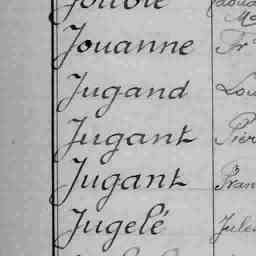 Jouanne Fr
Jugand Lou
Jugant Pier
Jugant Fran
Jugelé Jules